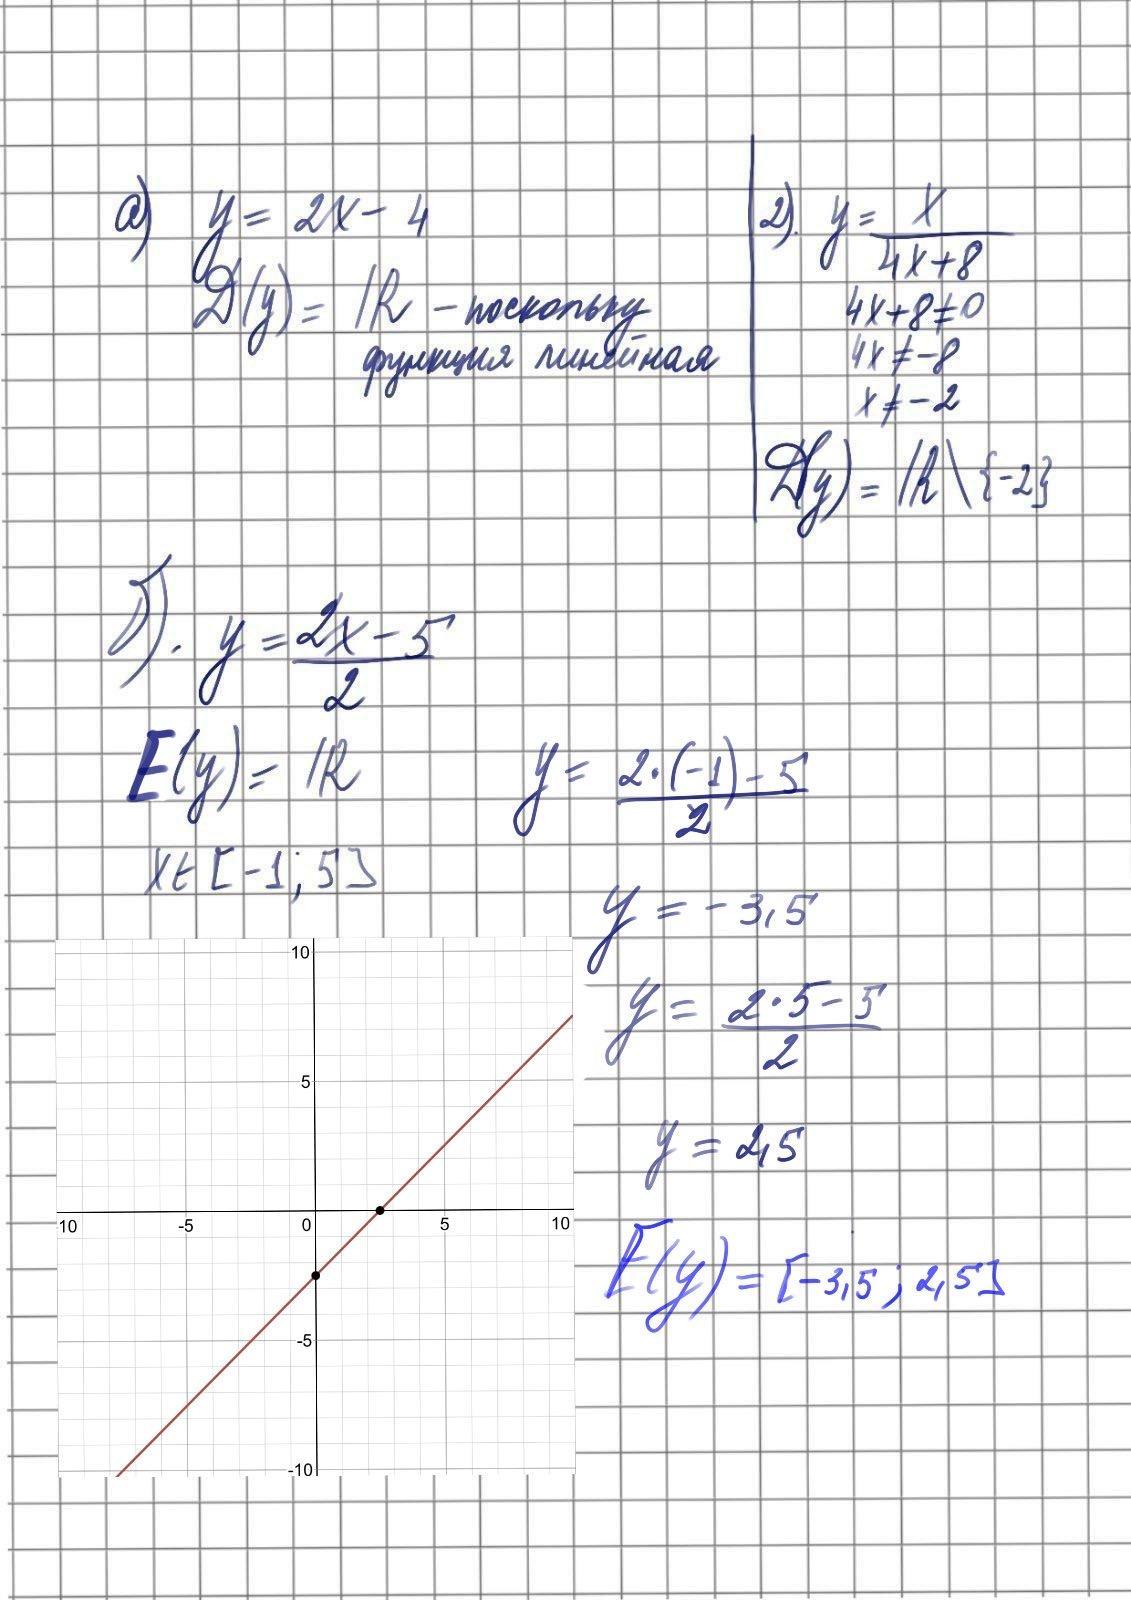 а) y = 2x - 4
D(y) = ℝ - поскольку
функция линейная
2). y = x
4x+8
4x+8≠0
4x≠-8
x≠-2
D(y) = ℝ \ {-2}
б). y = 2x - 5
2
E(y) = ℝ
x∈[-1; 5]
y = 2·(-1) - 5
2
y = -3,5
y = 2·5 - 5
2
y = 2,5
E(y) = [-3,5 ; 2,5]
10
5
10 -5 0 5 10
-5
-10